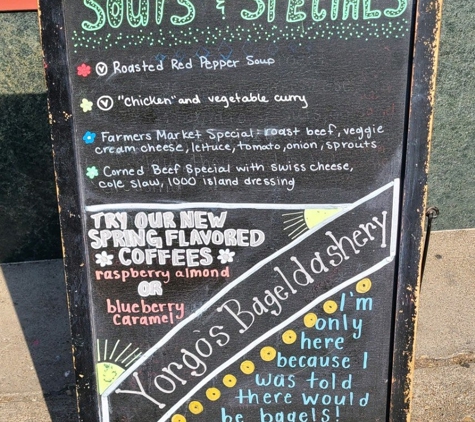 SOUPS & SPECIALS
V Roasted Red Pepper Soup
V "Chicken" and vegetable curry
Farmers Market Special: roast beef, veggie
cream cheese, lettuce, tomato, onion, sprouts
Corned Beef Special with swiss cheese,
cole slaw, 1000 island dressing
TRY OUR NEW
SPRING FLAVORED
COFFEES
raspberry almond
OR
blueberry
caramel
Yorgo's Bageldashery
I'm
only
here
because I
was told
there would
be bagels!